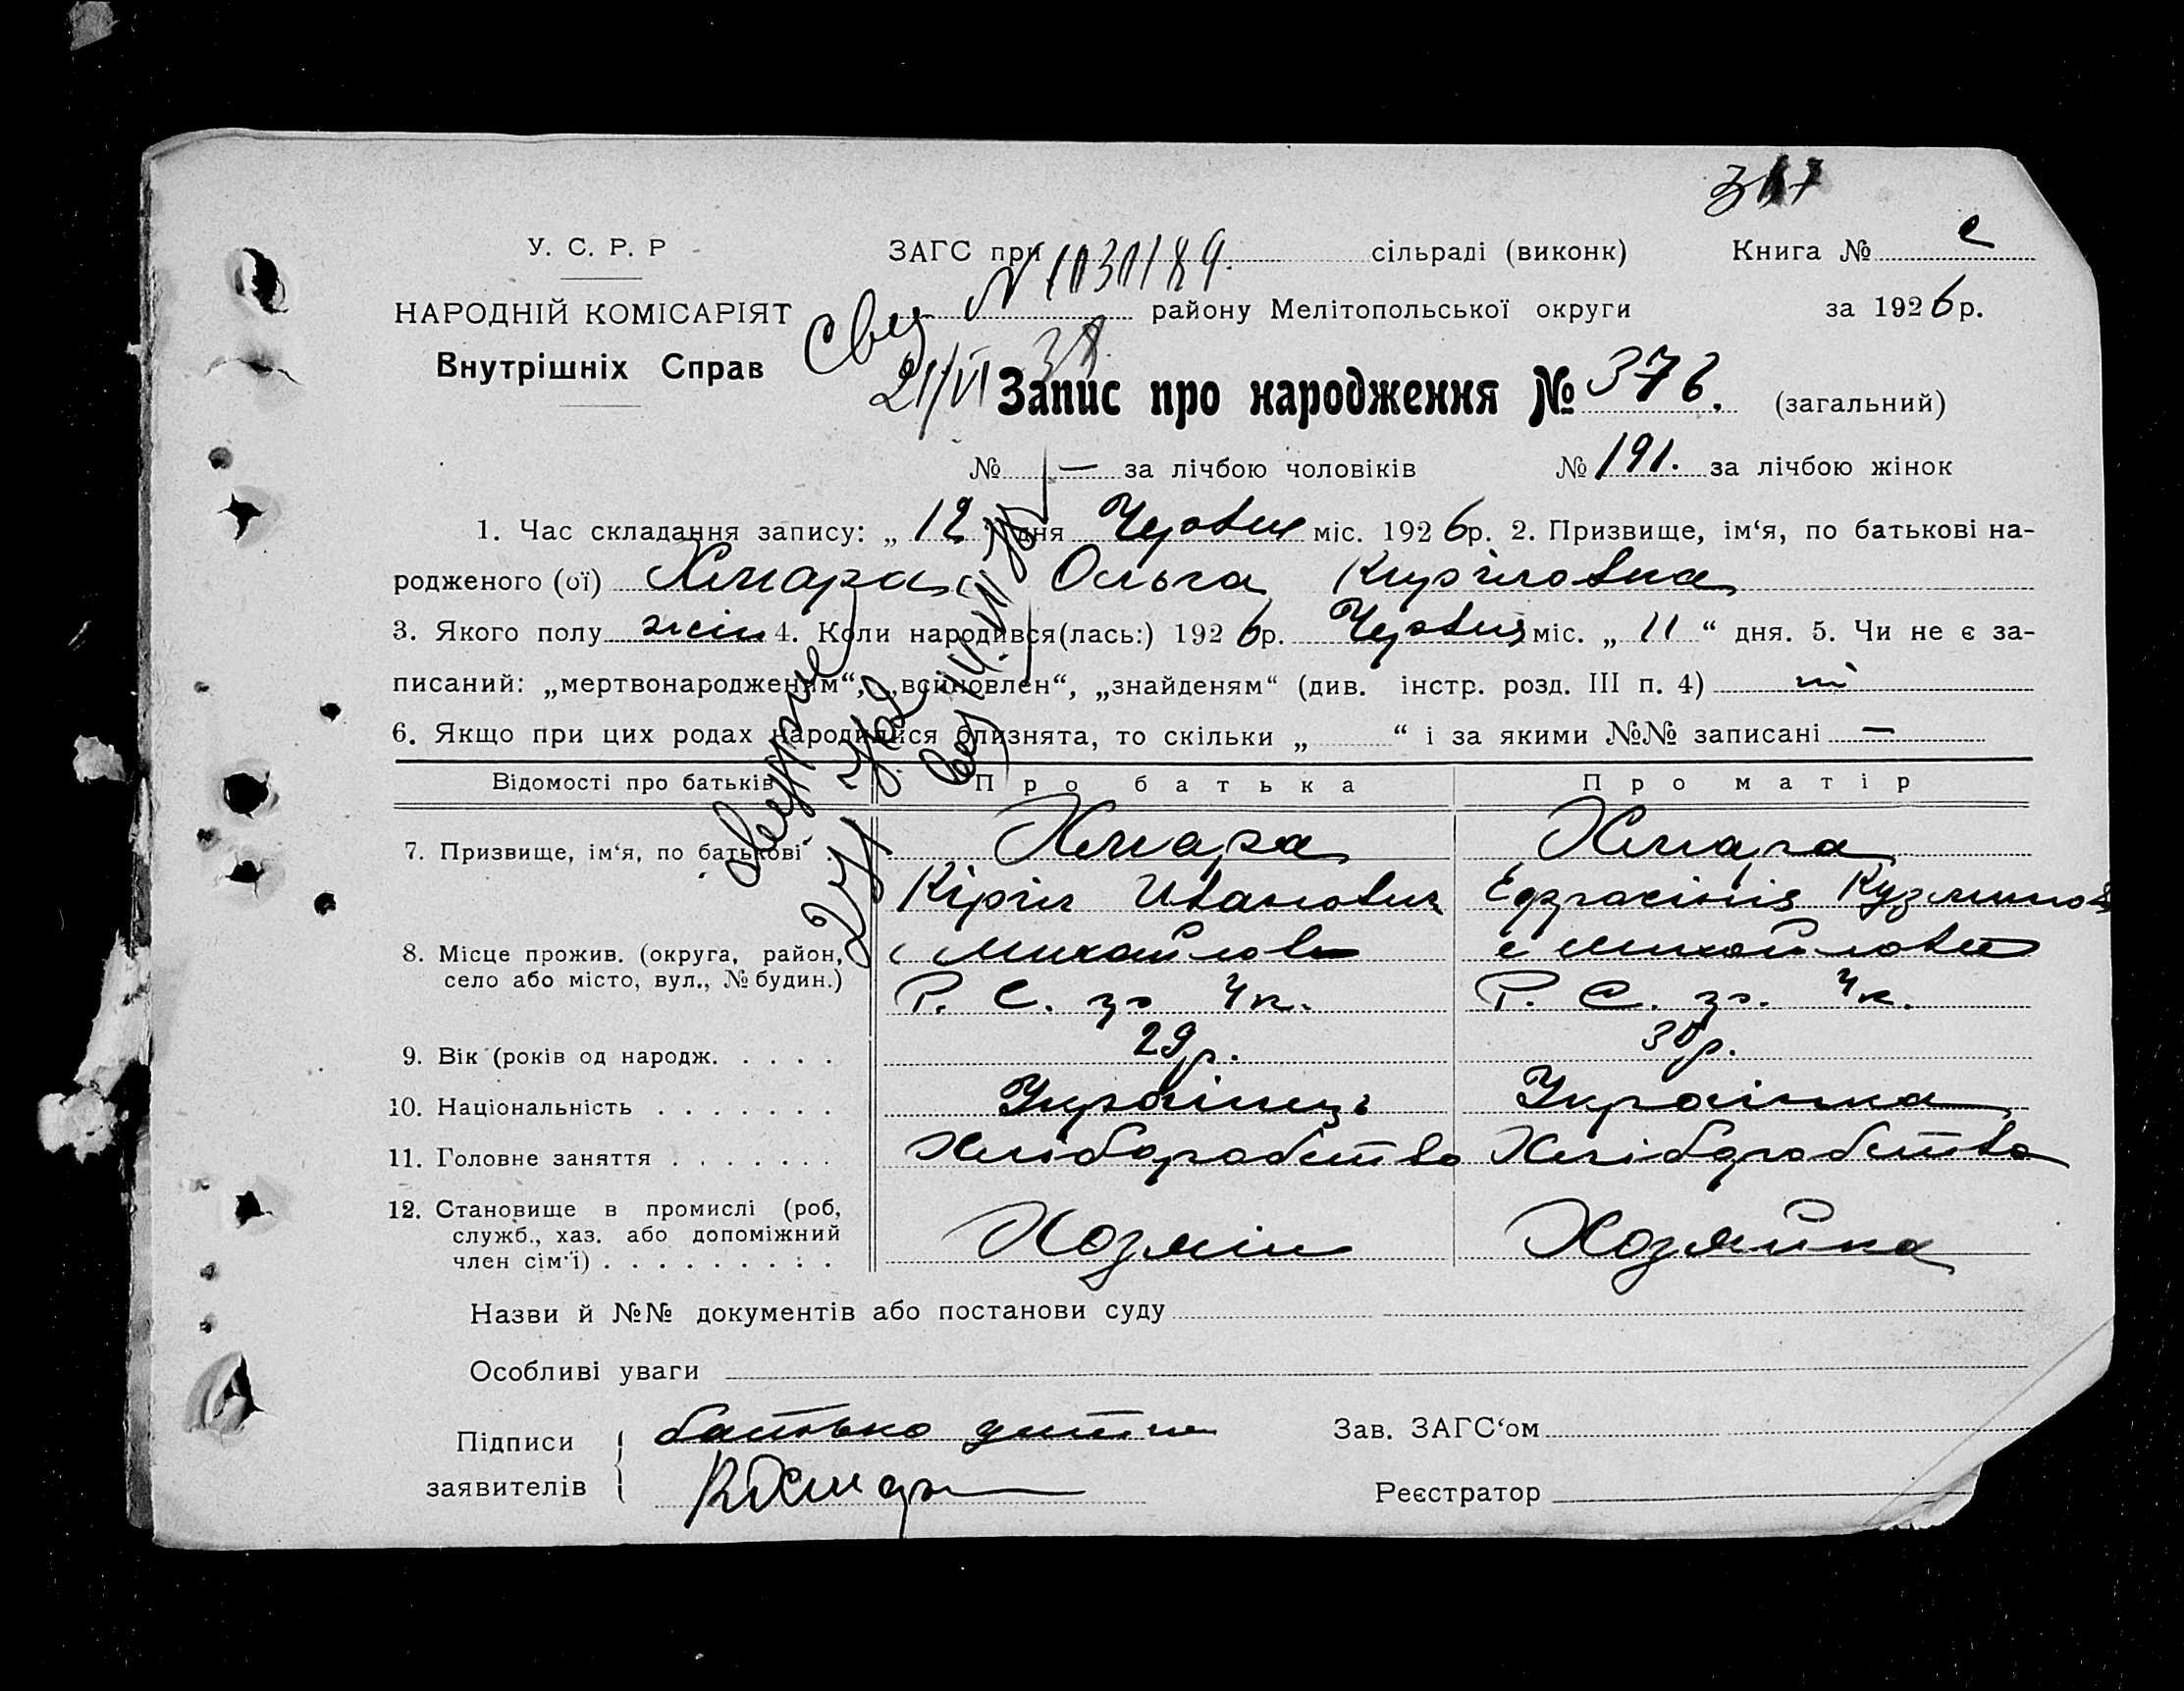 У. С. Р. Р
ЗАГС при сільраді (виконк)
Книга № 
НАРОДНІЙ КОМІСАРІЯТ
району Мелітопольської округи
за 1926 р.
Внутрішніх Справ
№ 1030189.
21/VI 38.
Запис про народження № 376. (загальний)
№ — за лічбою чоловіків № 191. за лічбою жінок
1. Час складання запису: „ 12 " дня Червня міс. 1926 р. 2. Призвище, ім‘я, по батькові на-
родженого (ої) Хмара Ольга Кирґіловна
3. Якого полу жін 4. Коли народився(лась:) 1926 р. Червня міс. „ 11 “ дня. 5. Чи не є за-
писаний: „мертвонародженим“, „всиновлен“, „знайденям“ (див. інстр. розд. III п. 4) ні
6. Якщо при цих родах народилися близнята, то скільки „ “ і за якими №№ записані —
Відомості про батьків Про батька Про матір
7. Призвище, ім‘я, по батькові Хмара Хмара
Кірґіл Иванович Єфросінія
8. Місце прожив. (округа, район, с Михайловка с Михайловка
село або місто, вул., № будин.) Р. С.
9. Вік (років од народж. 29 р. 30 р.
10. Національність Українець Українка
11. Головне заняття Хліборобство Хліборобство
12. Становище в промислі (роб,
служб., хаз. або допоміжний
член сім‘ї) Хозяін Хозяйка
Назви й №№ документів або постанови суду
Особливі уваги
Підписи батько дитини Зав. ЗАГС‘ом
заявителів КХмара Реєстратор